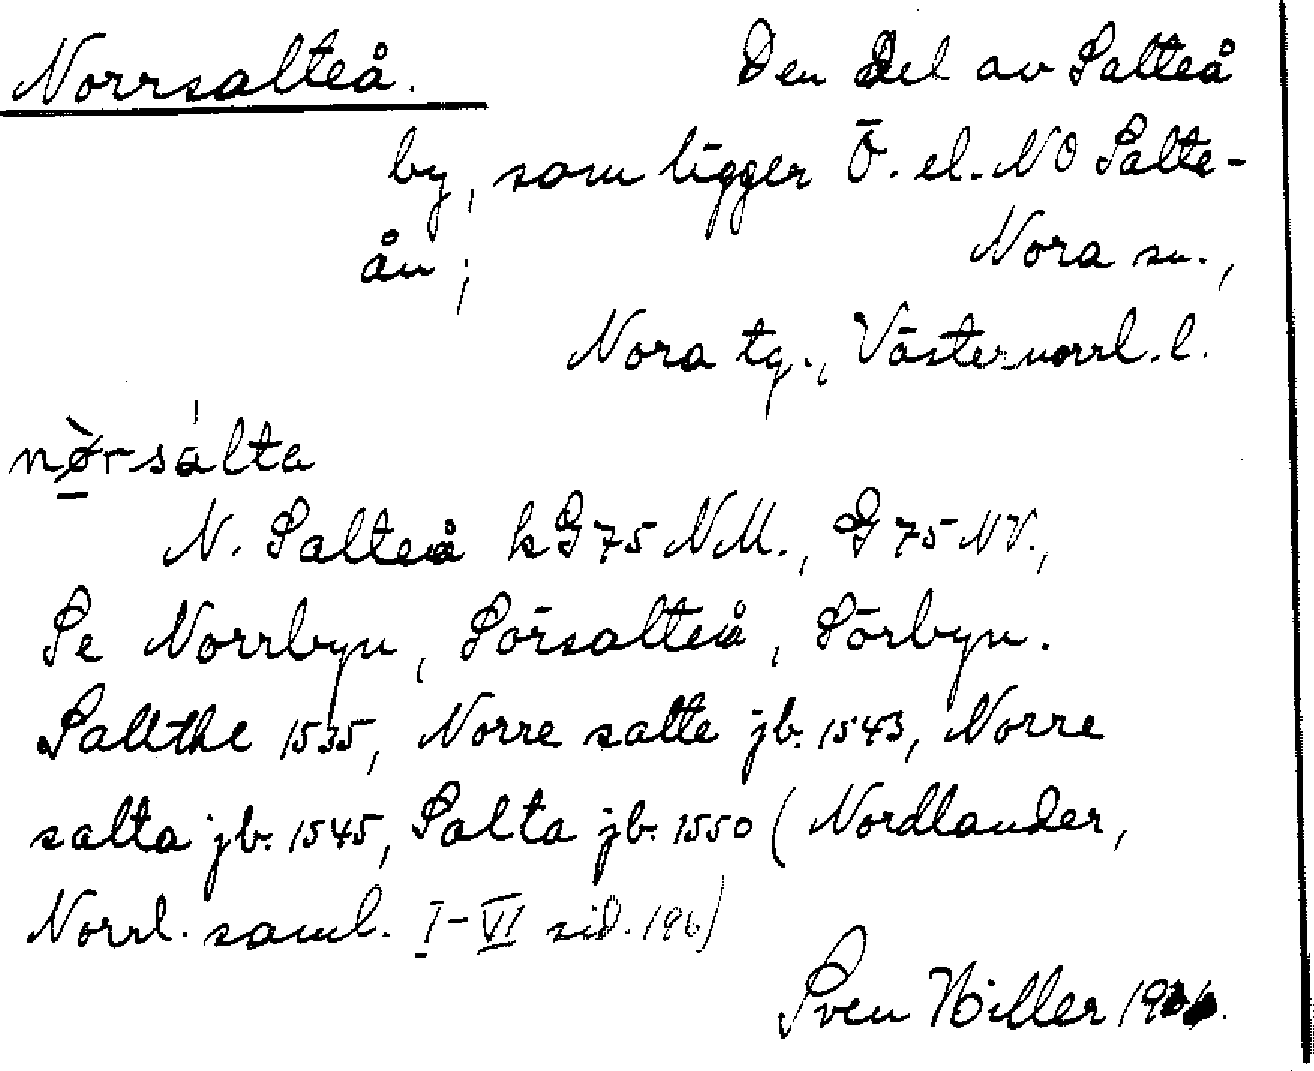 Norrsalteå. Den del av Salteå
by, som ligger Ö. el. NO Salte-
ån; Nora sn.,
Nora tg., Västernorrl. l.
nø̀rsálta
N. Salteå kG75 NM., G75 NV.,
Se Norrbyn, Sörsalteå, Sörbyn.
Sallthe 1535, Norre salte jb. 1543, Norre
salta jb. 1545, Salta jb. 1550 (Nordlander,
Norrl. saml. I-VI sid. 196)
Sven Hiller